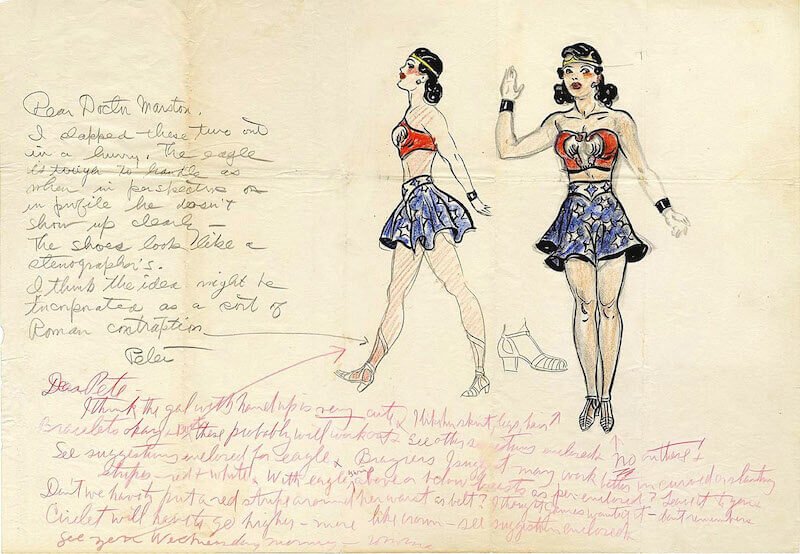 Dear Doctor Marston,
I slapped these two out
in a hurry. The eagle
is tough to handle as
when in perspective or
in profile he doesn't
show up clearly —
The shoes look like a
stenographer's.
I think the idea might be
incorporated as a sort of
Roman contraption
Peter
Dear Pete —
I think the gal with hand up is very cute. I like her skirt, legs, hair
Bracelets okay + boots these probably will work out. See other suggestions enclosed. No on these +
stripes — red + white. With eagle's wings above or below breasts as per enclosed? Leave it to you.
See suggestions enclosed for eagle Brassiere I suggest may work better in curved or slanting
Don't we have to put a red stripe around her waist as belt? I thought Gaines wanted it — don't remember.
Circlet will have to go higher — more like crown — see suggestion enclosed.
See you Wednesday morning —